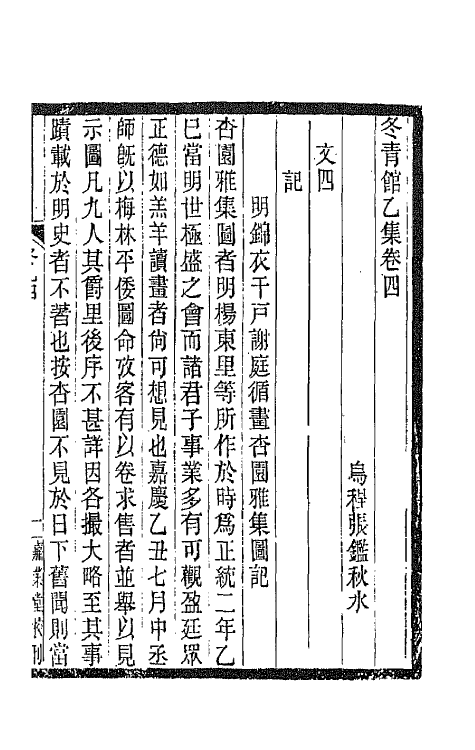 冬青館乙集卷四
烏程張鑑秋水
文四
記
明錦衣千戸謝庭循畫杏園雅集圖記
杏園雅集圖者明楊東里等所作於時爲正統二年乙
巳當明世極盛之會而諸君子事業多有可觀盈廷眾
正德如羔羊讀畫者尙可想見也嘉慶乙丑七月中丞
師旣以梅林平倭圖命攷客有以卷求售者並舉以見
示圖凡九人其爵里後序不甚詳因各撮大略至其事
蹟載於明史者不著也按杏園不見於日下舊聞則當
冬乙四
一
嘉業堂校刊